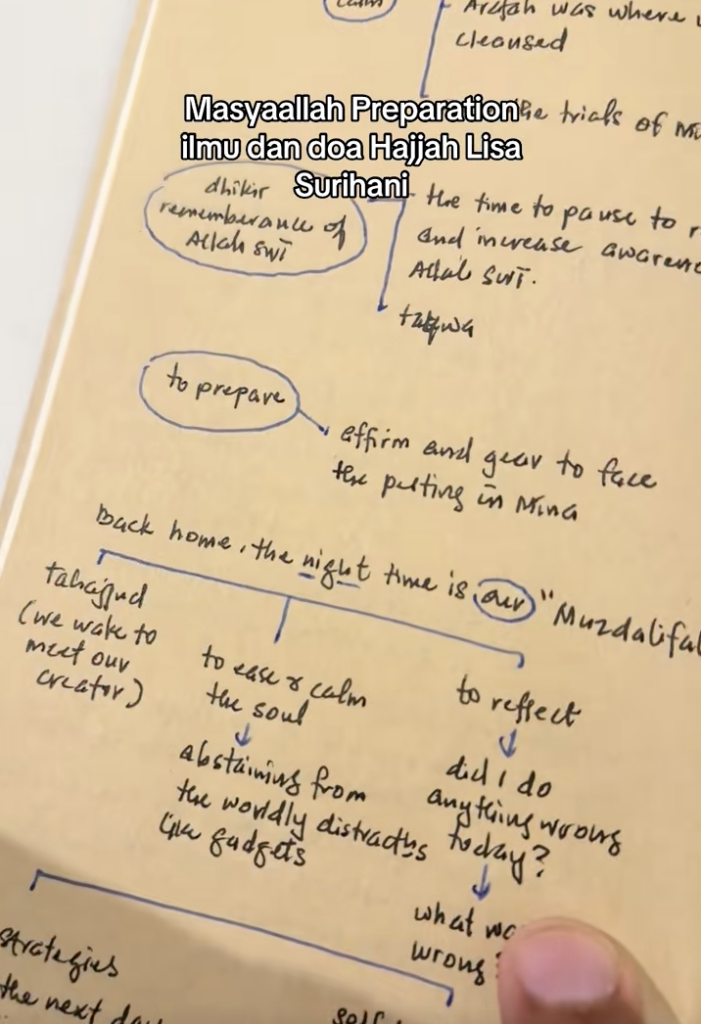 calm
Arafah was where
cleansed
Masyaallah Preparation
ilmu dan doa Hajjah Lisa
Surihani
the trials of
dhikir
rememberance of
Allah SWT
the time to pause to
and increase
Allah SWT.
taqwa
to prepare
affirm and gear to face
the pelting in Mina
Back home, the night time is our "Muzdalifah
tahajjud
(we wake to
meet our
creator)
to ease & calm
the soul
abstaining from
the worldly
like gadgets
to reflect
did I do
anything wrong
today?
what
wrong
strategies
the next